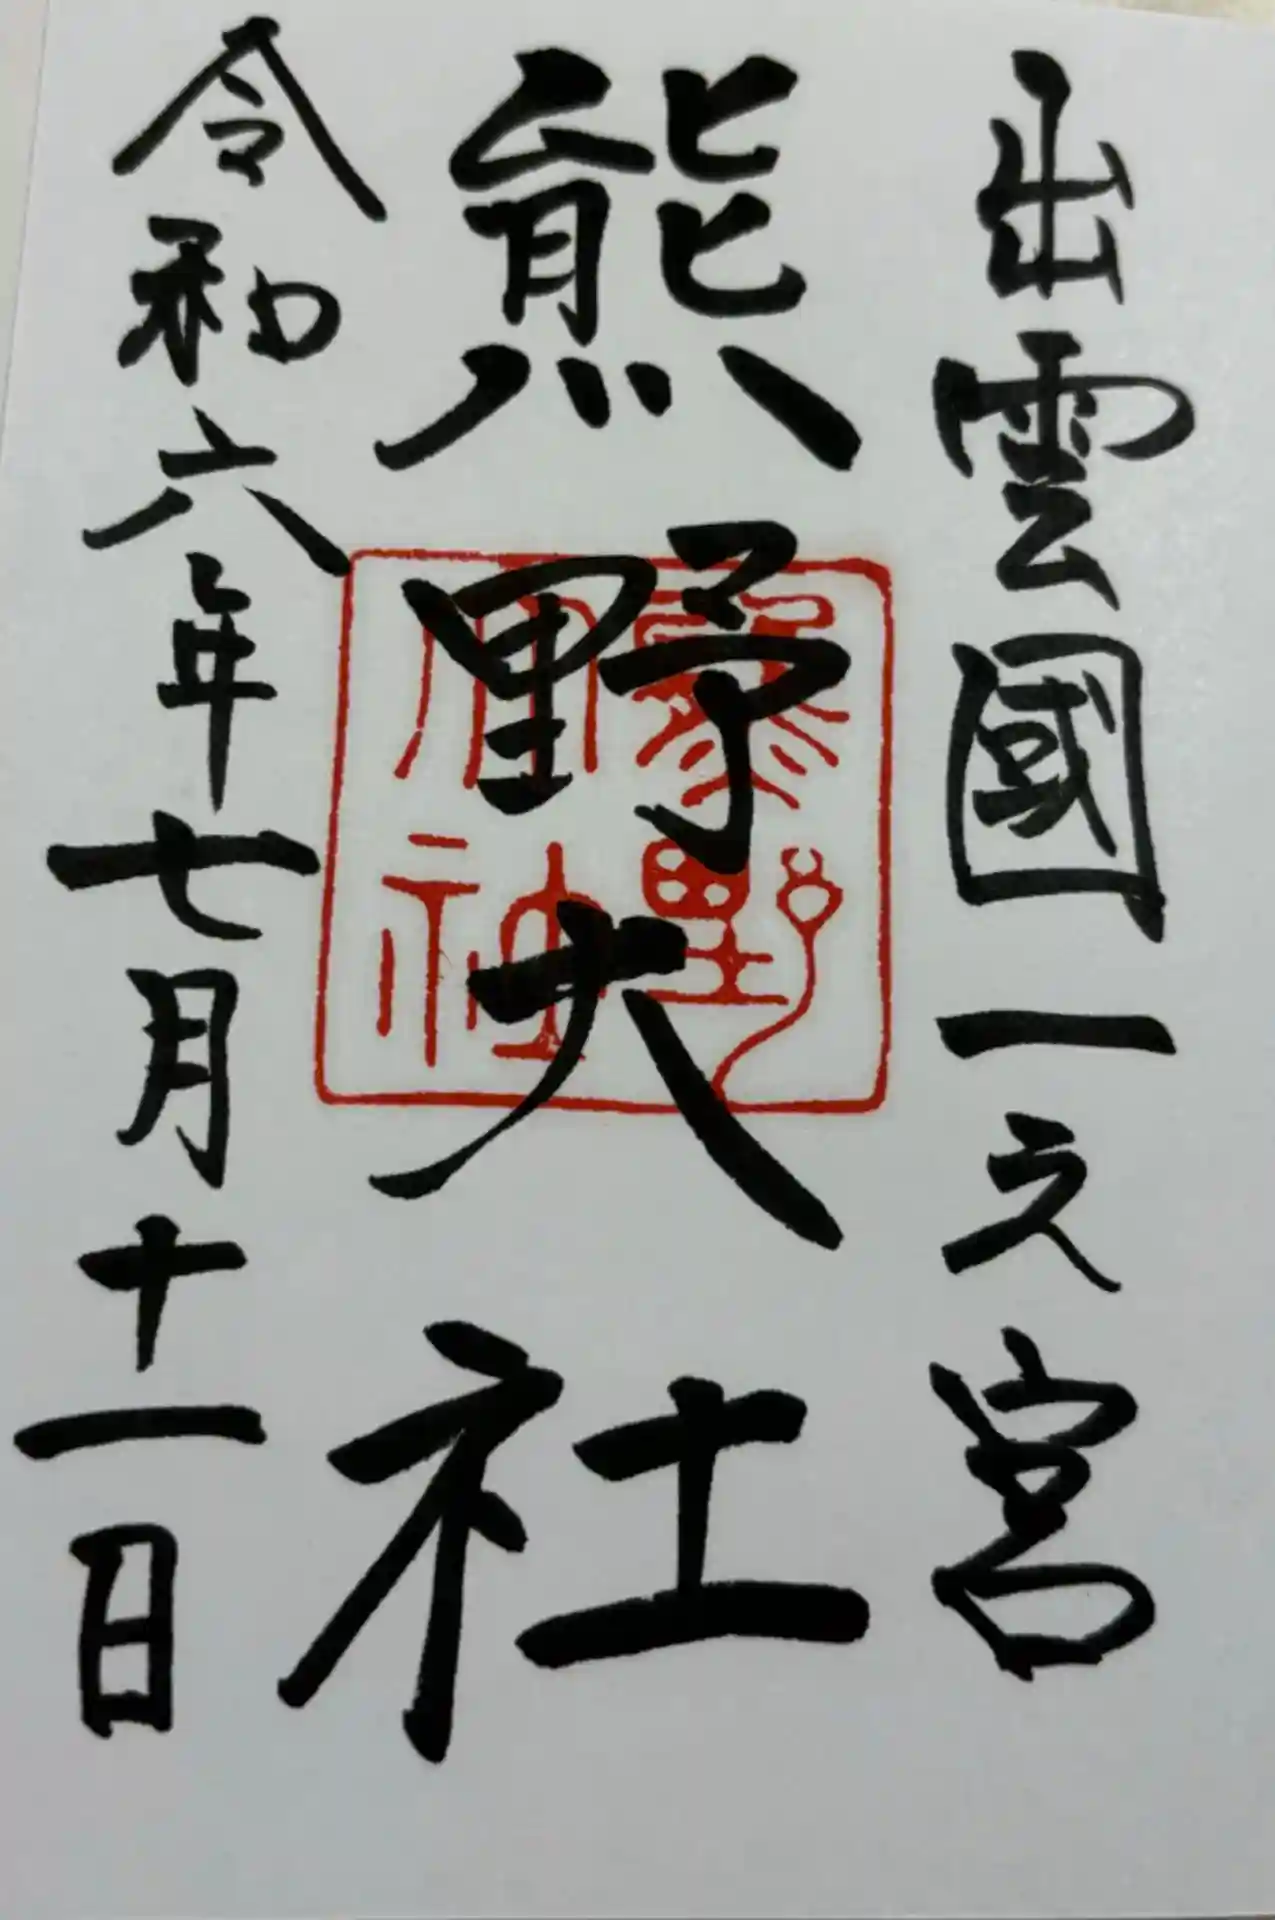 出雲國一之宮
熊野大社
令和六年七月十一日